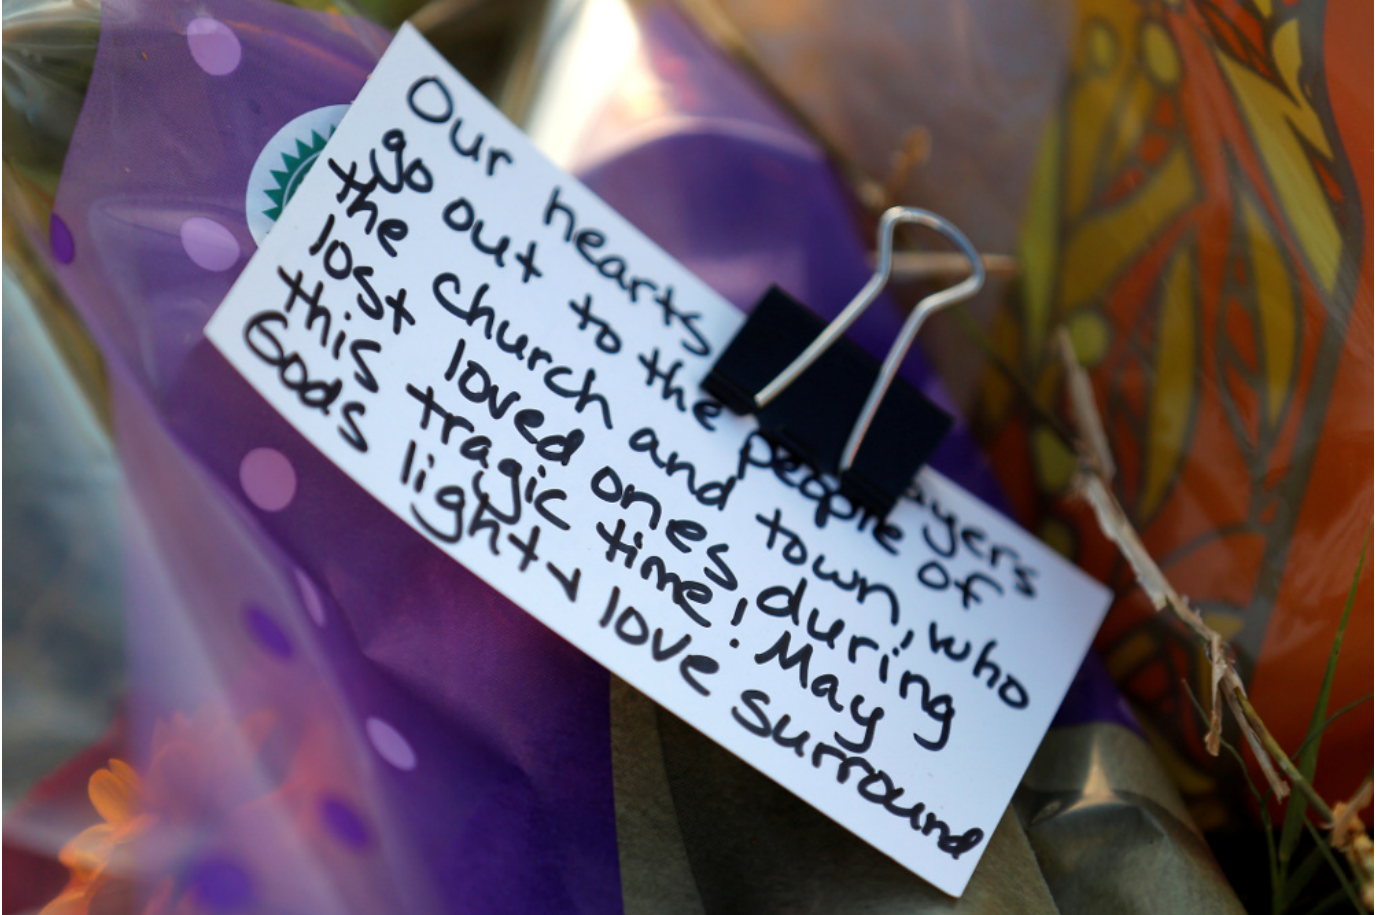 Our hearts ayers
go out to the people of
the church and town, who
lost loved ones during
this tragic time! May
Gods light & love surround